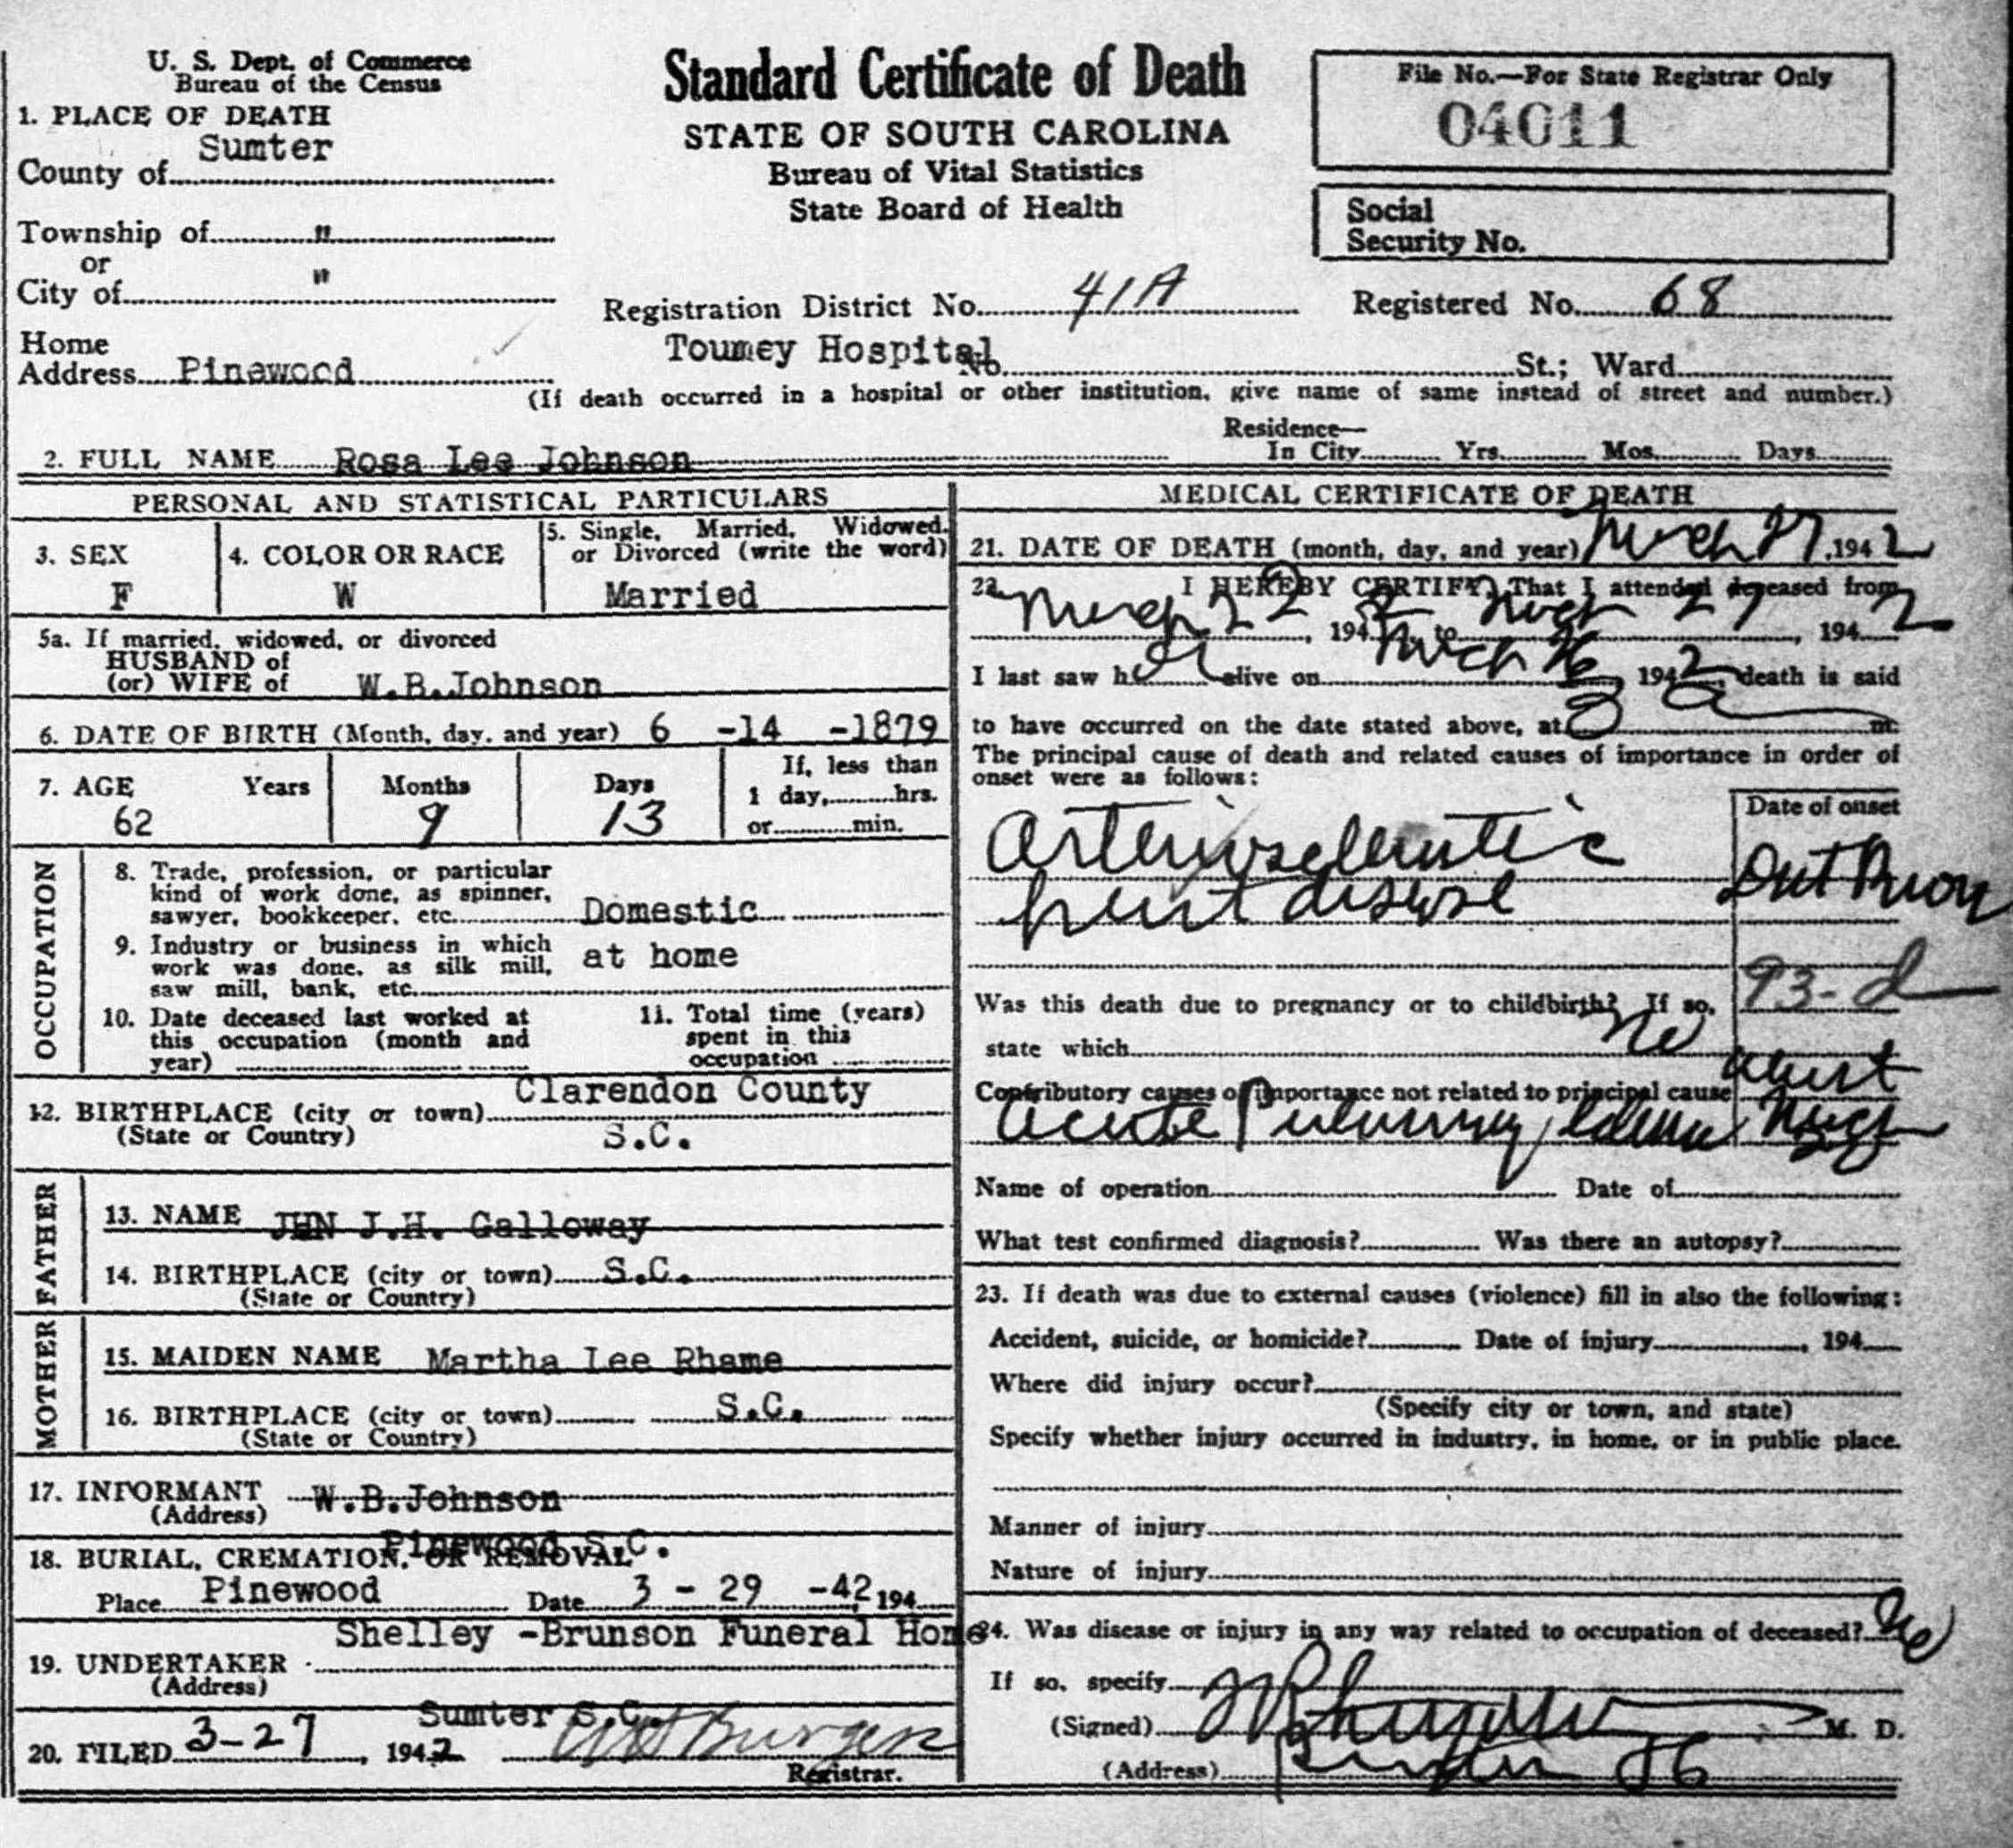 U. S. Dept. of Commerce
Bureau of the Census
Standard Certificate of Death
STATE OF SOUTH CAROLINA
Bureau of Vital Statistics
State Board of Health
File No.—For State Registrar Only
04011
Social
Security No.
1. PLACE OF DEATH
County of Sumter
Township of "
or
City of "
Home
Address Pinewood
Registration District No. 41A Registered No. 68
Toumey Hospital No. St.; Ward
(If death occurred in a hospital or other institution, give name of same instead of street and number.)
Residence—
In City Yrs. Mos. Days
2. FULL NAME Rosa Lee Johnson
PERSONAL AND STATISTICAL PARTICULARS
3. SEX
F
4. COLOR OR RACE
W
5. Single, Married, Widowed,
or Divorced (write the word)
Married
5a. If married, widowed, or divorced
HUSBAND of
(or) WIFE of W.B.Johnson
6. DATE OF BIRTH (Month, day, and year) 6 -14 -1879
7. AGE Years Months Days
62 9 13
If, less than
1 day, hrs.
or min.
OCCUPATION
8. Trade, profession, or particular
kind of work done, as spinner,
sawyer, bookkeeper, etc. Domestic
9. Industry or business in which
work was done, as silk mill,
saw mill, bank, etc. at home
10. Date deceased last worked at
this occupation (month and
year)
11. Total time (years)
spent in this
occupation
12. BIRTHPLACE (city or town) Clarendon County
(State or Country) S.C.
FATHER
13. NAME JHN J.H. Galloway
14. BIRTHPLACE (city or town) S.C.
(State or Country)
MOTHER
15. MAIDEN NAME Martha Lee Rhame
16. BIRTHPLACE (city or town) S.C.
(State or Country)
17. INFORMANT W.B.Johnson
(Address) Pinewood S.C.
18. BURIAL, CREMATION, OR REMOVAL
Place Pinewood Date 3 - 29 -42, 194
19. UNDERTAKER Shelley -Brunson Funeral Home
(Address) Sumter S.C.
20. FILED 3-27, 1942 Burgess
Registrar.
MEDICAL CERTIFICATE OF DEATH
21. DATE OF DEATH (month, day, and year) March 27, 1942
22. I HEREBY CERTIFY, That I attended deceased from
March 22, 1942 to March 27, 1942
I last saw her alive on March 26, 1942, death is said
to have occurred on the date stated above, at 3 a m.
The principal cause of death and related causes of importance in order of
onset were as follows:
Date of onset
Arteriosclerotic
heart disease
93-d
Was this death due to pregnancy or to childbirth? If so,
state which no
Contributory causes of importance not related to principal cause
Acute Pulmonary Edema March
Name of operation Date of
What test confirmed diagnosis? Was there an autopsy?
23. If death was due to external causes (violence) fill in also the following:
Accident, suicide, or homicide? Date of injury, 194
Where did injury occur?
(Specify city or town, and state)
Specify whether injury occurred in industry, in home, or in public place.
Manner of injury
Nature of injury
24. Was disease or injury in any way related to occupation of deceased? No
If so, specify
(Signed) M. D.
(Address) Sumter SC